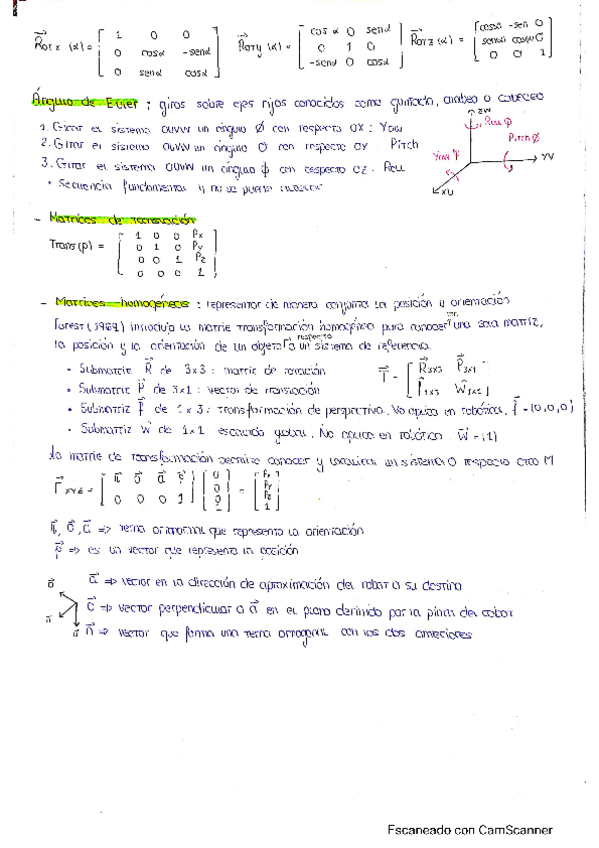 Rotx (α) = [ 1 0 0 ; 0 cosα -senα ; 0 senα cosα ] Roty (α) = [ cosα 0 senα ; 0 1 0 ; -senα 0 cosα ] Rotz (α) = [ cosα -sen 0 ; senα cosα 0 ; 0 0 1 ]
Ángulo de Euler : giros sobre ejes fijos conocidos como guiñada, alabeo o cabeceo
1. Girar el sistema OUVW un ángulo φ con respecto OX : Yaw
2. Girar el sistema OUVW un ángulo θ con respecto OY Pitch
3. Girar el sistema OUVW un ángulo ϕ con respecto OZ . Roll
• Secuencia fundamental y no se puede
ZW
Roll ϕ
Pitch
Yaw
YV
XU
- Matrices de translación
Trans (p) = [ 1 0 0 Px ; 0 1 0 Py ; 0 0 1 Pz ; 0 0 0 1 ]
- Matrices homogéneas : representar de manera conjunta la posición y orientación
Forest (1969) introdujo la matriz transformación homogénea para conocer con una sola matriz,
la posición y la orientación de un objeto respecto a un sistema de referencia.
• Submatriz R de 3x3 : matriz de rotación
• Submatriz P de 3x1 : vector de translación
• Submatriz f de 1x3 : transformación de perspectiva. No aplica en robótica. f = (0,0,0)
• Submatriz W de 1x1 escalado global. No aplica en robótica. W = (1)
T = [ R3x3 P3x1 ; f1x3 W1x1 ]
La matriz de transformación permite conocer y un sistema O respecto otro M
n, o, a => terna ortonormal que representa la orientación
p => es un vector que representa la posición
a => vector en la dirección de aproximación del robot a su destino
o => vector perpendicular a a en el plano definido por la pinza del robot
n => vector que forma una terna ortogonal con los dos anteriores
Escaneado con CamScanner